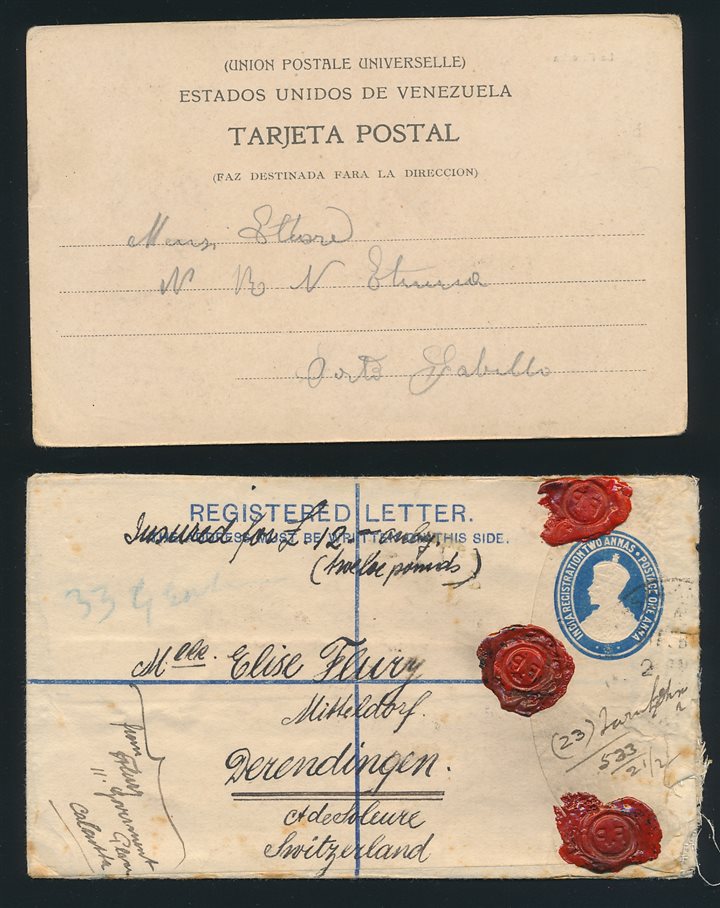 (UNION POSTALE UNIVERSELLE)
ESTADOS UNIDOS DE VENEZUELA
TARJETA POSTAL
(FAZ DESTINADA FARA LA DIRECCION)
Ettore
N R N Etruria
Porto Gabello
REGISTERED LETTER.
THE ADDRESS MUST BE WRITTEN ON THIS SIDE.
Insured for £ 12 – only.
(twelve pounds)
INDIA REGISTRATION TWO ANNAS • POSTAGE ONE ANNA
33
Mlle. Elise Flury
Mitteldorf.
Derendingen.
Ct de Soleure
Switzerland
from
Flury
11 Government
Place
Calcutta
(23)
533
2 1/2